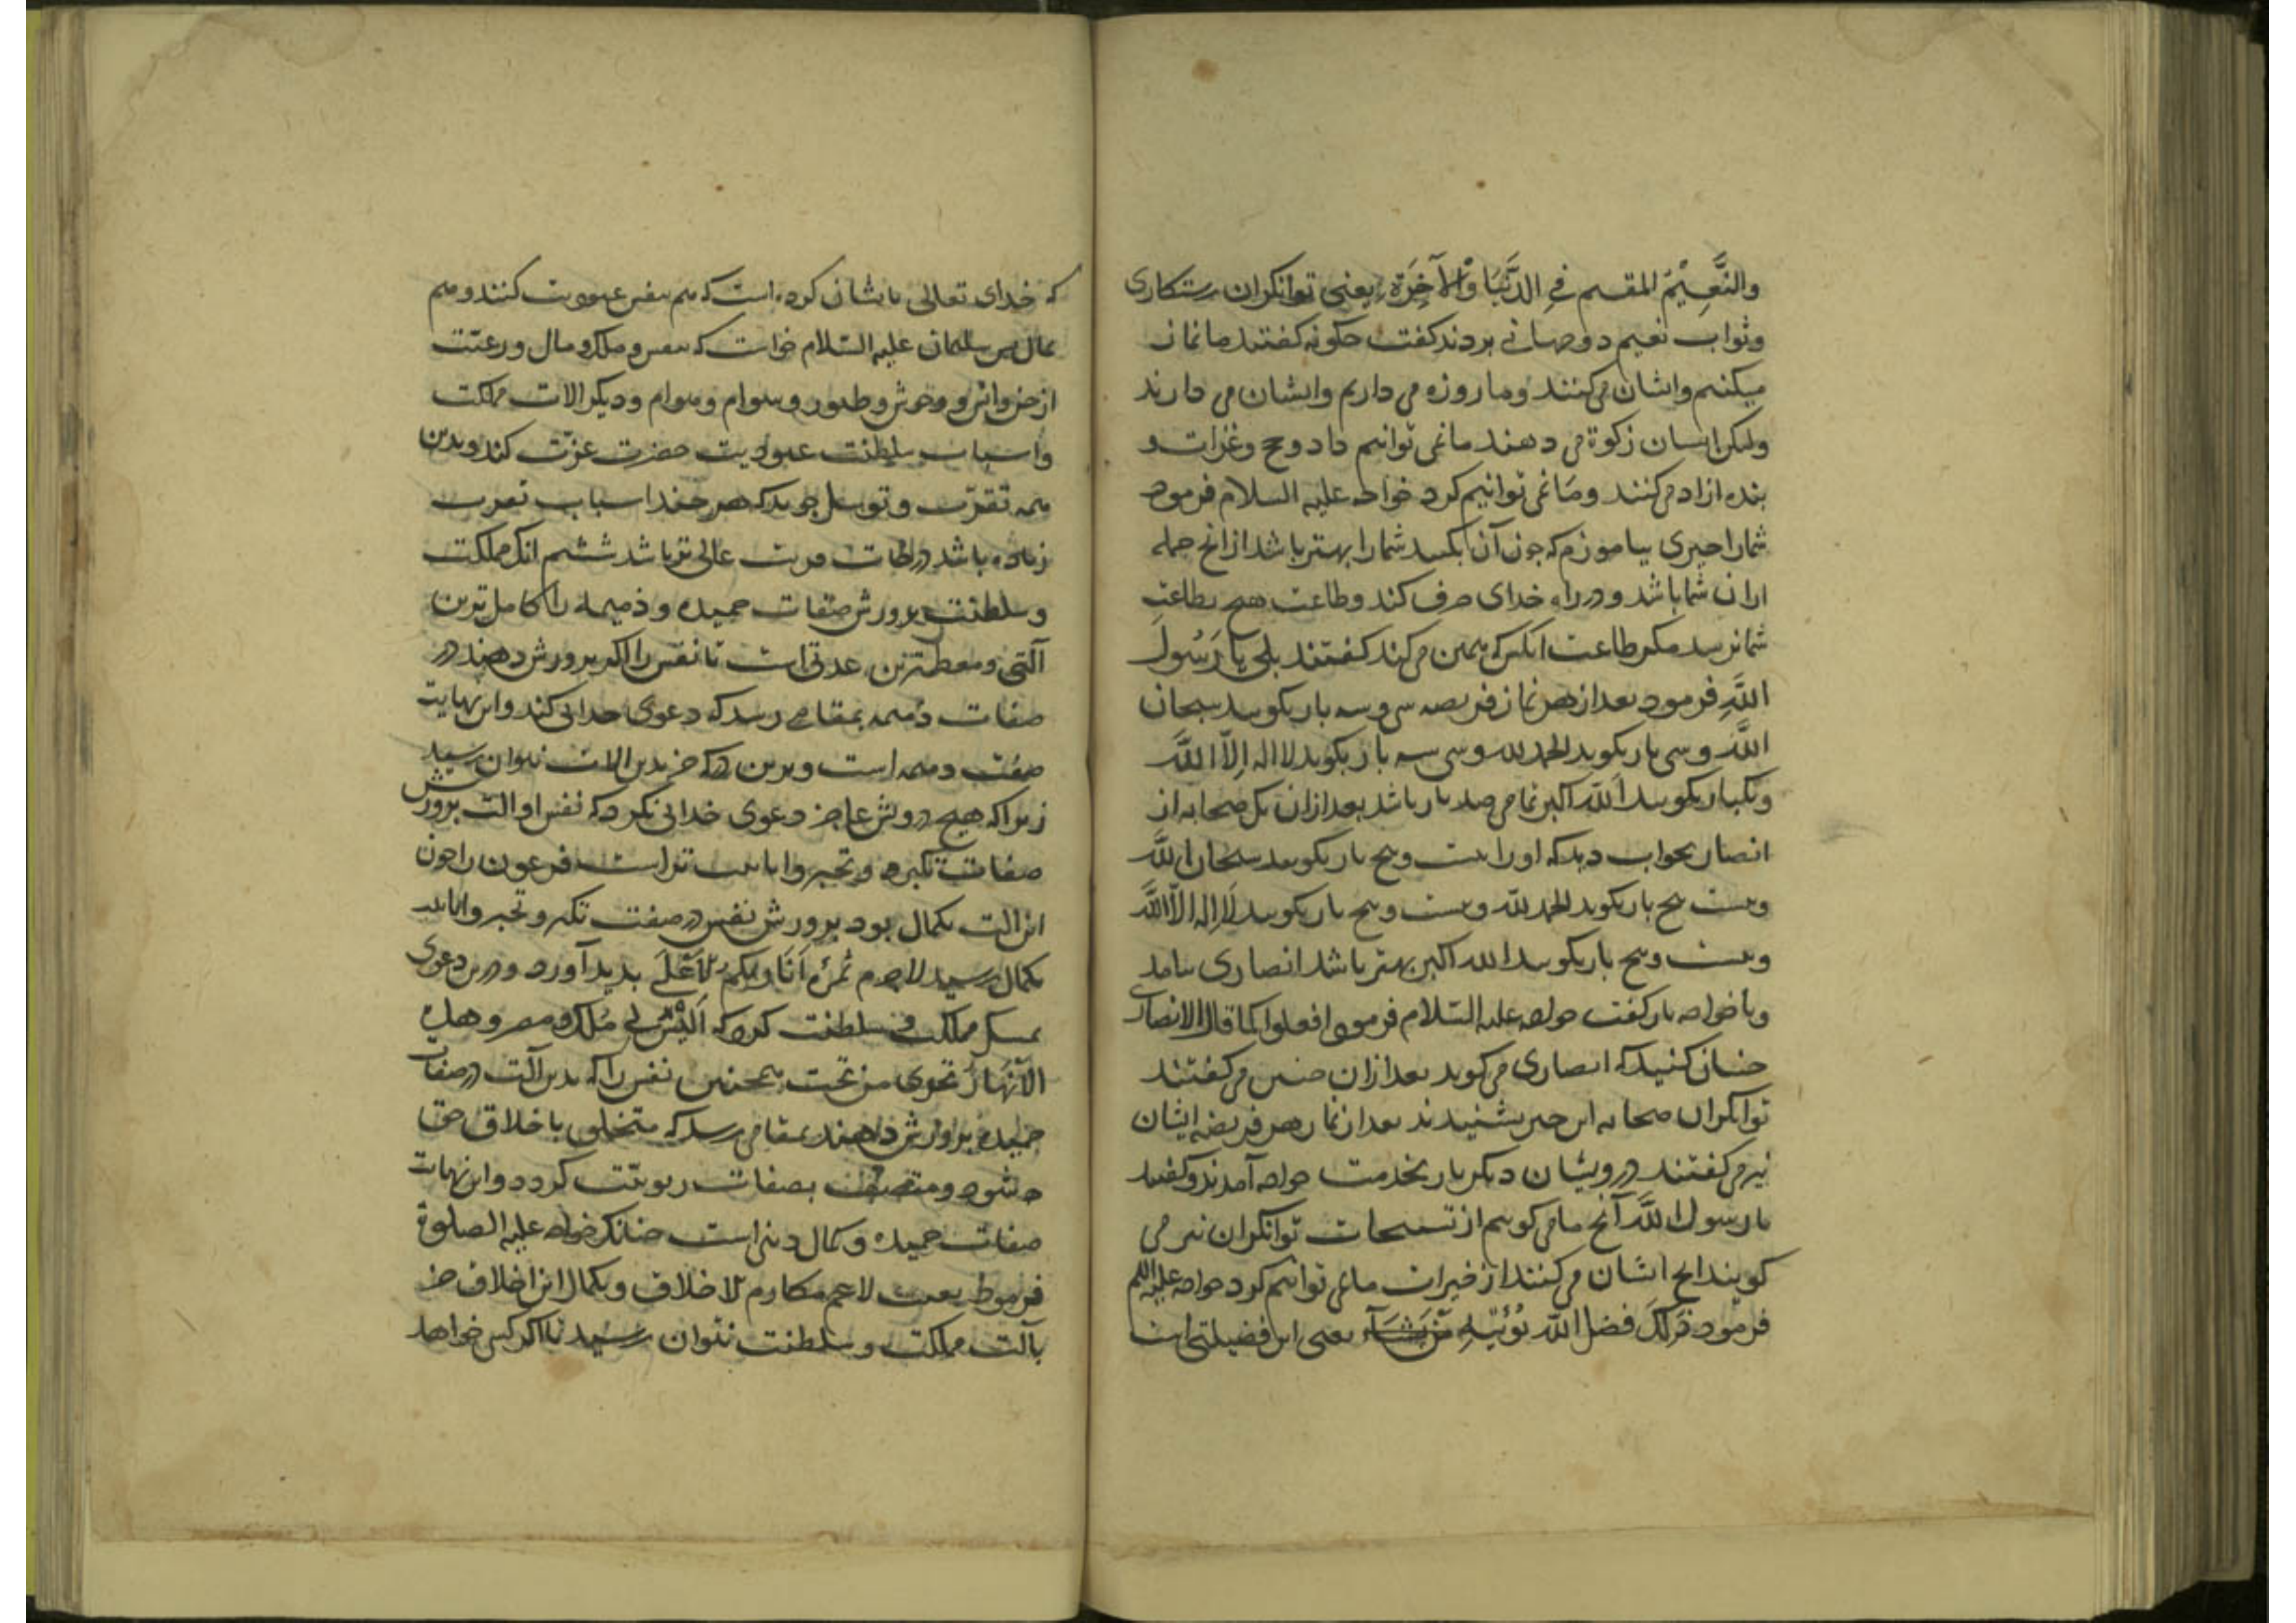 والنَّعِیْمُ المقیم فِي الدُّنْیَا وَالْآخِرَةِ یعنی توانکران رستکاری
وثواب نعیم دوجهانی بردند کفت چکونه کفتند ما نماز
میکنیم وایشان می‌کنند وما روزه می داریم وایشان می دارند
ولیکن ایشان زکوة می دهند ما نمی توانیم داد وحج وغزات و
بنده ازاد می‌کنند ومَا نمی توانیم کرد خواجه علیه السلام فرمود
شمارا چیزی بیاموزم که چون آن بکنید شمارا بهتر باشد از انج جمله
ایران شما باشد ودر راه خدای صرف کند وطاعت هیچ بطاعت
شما نرسد مکر طاعت انکس که همین می‌کند کفتند بلی یا رَسُولَ
اللَّهِ فرمود بعد از هر نماز فریضه سی وسه بار بکویید سبحان
اللَّه وسی بار بکوید الحمد لله وسی سه بار بکوید لا اله اِلّا اللَّه
ویکبار بکویید اَللّه اکبر تمامی صد بار باشد بعد ازان یکی صحابه از
انصار بخواب دید که اورا بیست وپنج بار بکویید سبحان اللَّه
وبیست پنج بار بکوید الحمد للّه وبیست وپنج بار بکویید لَا اِله الّا اللَّه
وبیست وپنج بار بکویید الله اکبر بهتر باشد انصاری بیامد
وبا خواجه باز کفت خواجه علیه السّلام فرمود افعلوا کما قال الانصاری
چنان کنید که انصاری می‌کوید بعد ازان چنین می‌کفتند
توانکران صحابه این خبر بشنیدند بعد از نماز هر فریضه ایشان
نیز می‌کفتند درویشان دیکر بار بخدمت خواجه آمدند وکفتند
یا رسول اللَّه آنج ما می کوییم از تسبیحات توانکران نیز می
کویند انج ایشان می‌کنند از خیرات ما نمی توانیم کرد خواجه علیه السلم
فرمود ذَلِکَ فضل اللّه یُؤْتِیْهِ مَنْ یَشَآء یعنی این فضیلتی است
که خدای تعالی با یشان کرده است که هم بنفس عبودیت کنند وهم
بمال پس سلیمان علیه السّلام خواست که بنفس وملک ومال ورعیّت
از جن وانس و وحوش وطیور وسوام وهوام ودیکر الات مملکت
واسباب سلطنت عبودیت حضرت عزّت کند وبدین
همه تقرّب وتوسل جوید که هر چند اسباب تقرب
زیاده باشد درجات قربت عالی تر باشد ششم انک مملکت
وسلطنت پرورش صفات حمیده وذمیمه را کامل ترین
آلتی ومعظم‌ترین عدتی است تا نفس را اکر پرورش دهند در
صفات ذمیمه بمقامی رسد که دعوی خدایی کند واین نهایت
صفت ذمیمه است وبرین درکه جز بدین الات نتوان رسید
زیرا که هیچ درویش عاجز دعوی خدایی نکرد که نفس او الت پرورش
صفات تکبر وتجبر وانانیت نداشت فرعون را چون
این الت بکمال بود پرورش نفس در صفت تکبر وتجبر وانانیت
بکمال رسید لا جرم ثمرهٔ اَنَا رَبّکُم الْأَعْلَی بدید آورد ودرین دعوی
تمسک مملکت وسلطنت کرد که اَلَیْسَ لِي مُلْکُ مصر وهذه
الْأَنْهَارُ تجری من تحتی همچنین نفس را که بدین آلت در صفات
حمیده پرورش دهند بمقامی رسد که متخلق باخلاق حق
شود ومتصف بصفات ربوبیّت کردد واین نهایت
صفات حمیده وکمال دینست چنانک خواجه علیه الصلوة
فرمود بعثت لاتمم مکارم الاخلاق وبکمال این اخلاق جز
بآلت مملکت وسلطنت نتوان رسید تا اکر کسی خواهد